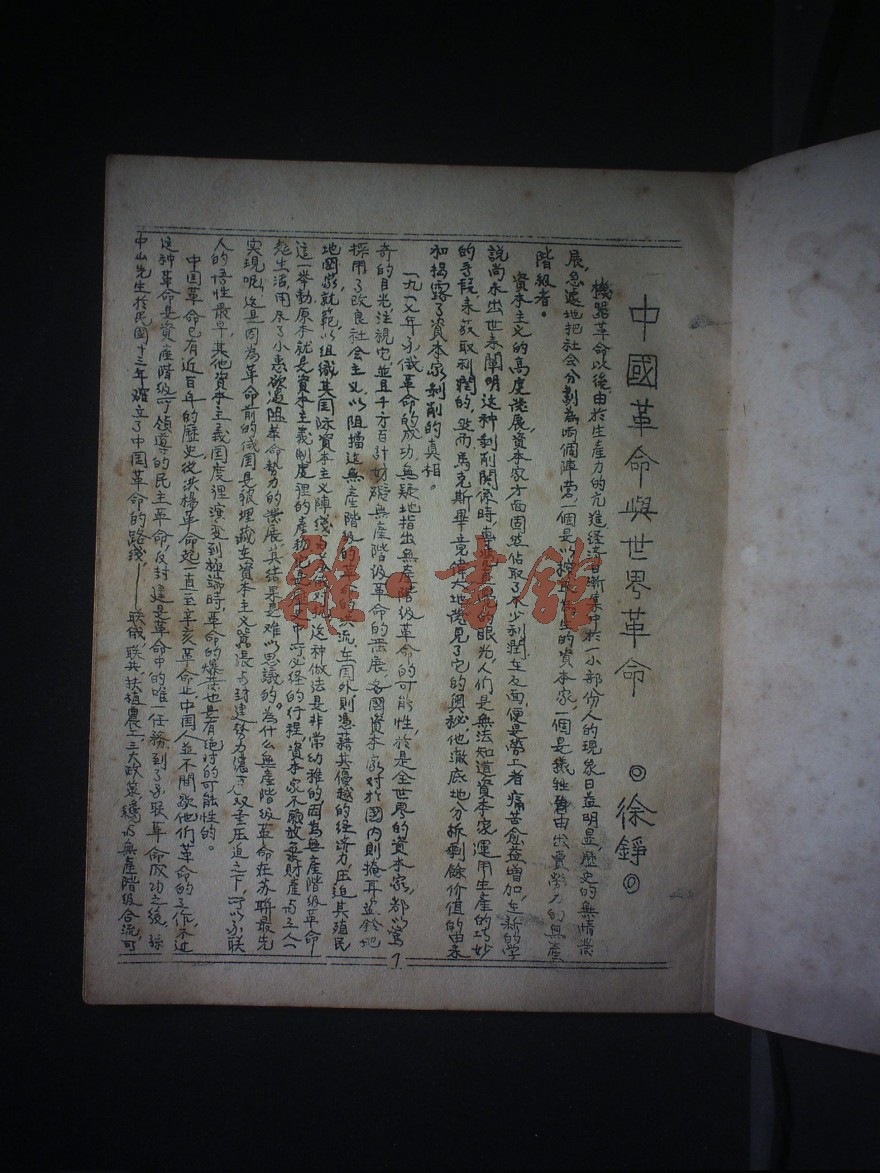 中國革命與世界革命
◎徐錚◎
機器革命以後由於生產力的亢進経済日漸集中於一小部份人的現象日益明显,歷史的無情発
展,急遽地把社会分劃為両個陣营,一個是以 的資本家一個是犠牲 由出賣勞力的無產
階級者。
資本主义的高度発展,資本家方面固然佔取了不少利潤,在反面,便是勞工者痛苦愈益增加,在新的学
説尚未出世来闡明这种剝削関係時, 的眼光,人们是無法知道資本家運用生產的巧妙
的手段,来获取利潤的,然而馬克斯畢竟偉大地発見了它的奥秘,他澈底地分析剩餘价值的由来
和揭露了資本家剝削的真相。
一九一七年苏俄革命的成功,無疑地指出無產階級革命的可能性,於是全世界的資本家,都以驚
奇的目光注視它,並且千方百計妨礙無產階級革命的発展,各國資本家对於國内則掩耳盗鈴地
採用了改良社会主义以阻擋这無產階級的革命的 流,在国外則憑藉其優越的経済力压迫其殖民
地國家就範,以組織其国际資本主义陣线 这种做法是非常幼稚的因為無產階級革命
这一举動原本就是資本主義制度裡的產物也 中所必経的行程,資本家不願放棄財產与工人一
起生活,用尽了小惠欲遏阻革命勢力的発展,其结果是难以思議的。為什么無產階級革命在苏联最先
实現呢,这是因為革命前的俄国是被埋藏在資本主义嚣漲与封建势力 双重压迫之下,所以苏联
人的悟性最早,其他資本主義國度裡演変到極端時,革命的爆発也是有绝对的可能性的。
中国革命已有近百年的歷史,從洪楊革命起一直至辛亥革命止,中国人並不間歇他们革命的工作,不过
这种革命是資產階級所領導的民主革命,反封建是革命中的唯一任務,到了苏联革命成功之後,孫
中山先生於民國十三年確立了中国革命的路线,——联俄,联共,扶植農工三大政策,總 与無產階級合流,可
1
雜·書館